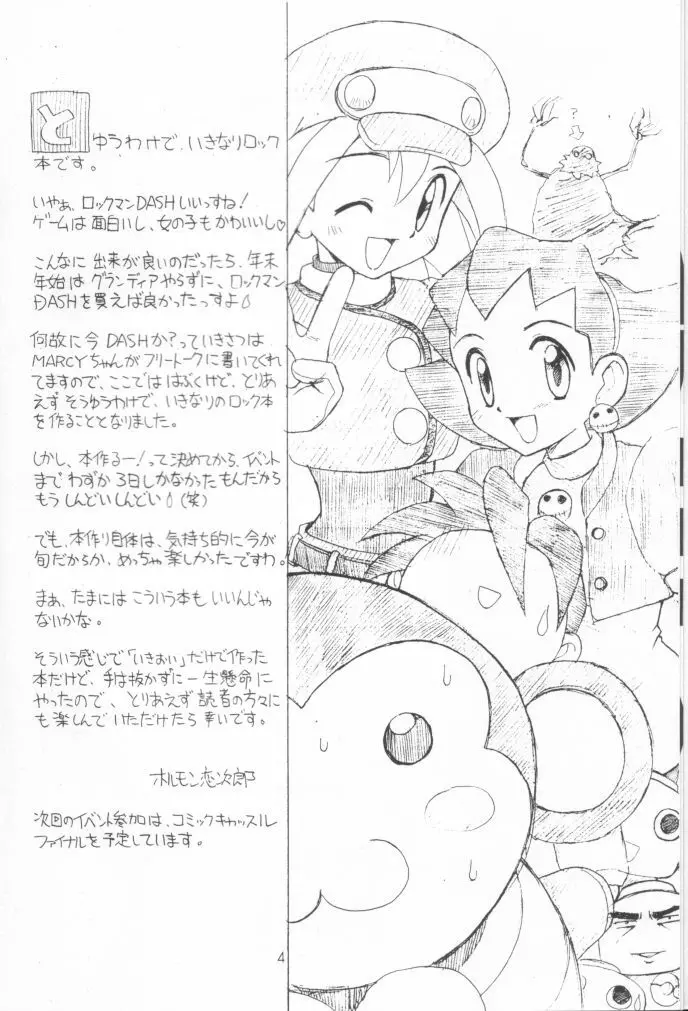 と
ゆうわけで、いきなりロック
本です。
いやぁ、ロックマンDASHいいっすね!
ゲームは面白いし、女の子もかわいいし♡
こんなに出来が良いのだったら、年末
年始はグランディアやらずに、ロックマン
DASHを買えば良かったっすよ
何故に今DASHか?っていきさつは
MARCYちゃんがフリートークに書いてくれ
てますので、ここでははぶくけど、とりあ
えずそうゆうわけで、いきなりのロック本
を作ることとなりました。
しかし、本作るー!って決めてから、イベント
までわずか3日しかなかったもんだから
もうしんどいしんどい (笑)
でも、本作り自体は、気持ち的に今が
旬だからか、めっちゃ楽しかったですわ。
まぁ、たまにはこういう本もいいんじゃ
ないかな。
そういう感じで「いきおい」だけで作った
本だけど、手は抜かずに一生懸命に
やったので、とりあえず読者の方々に
も楽しんでいただけたら幸いです。
ホルモン恋次郎
次回のイベント参加は、コミックキャッスル
ファイナルを予定しています。
?
4